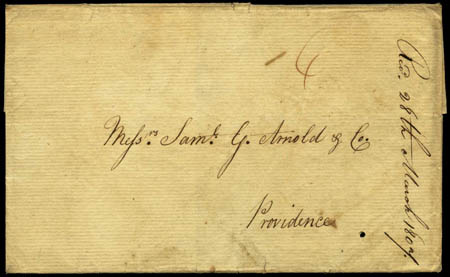 Messrs. Saml. G. Arnold & Co.
Providence
Recd. 28th March 1807.